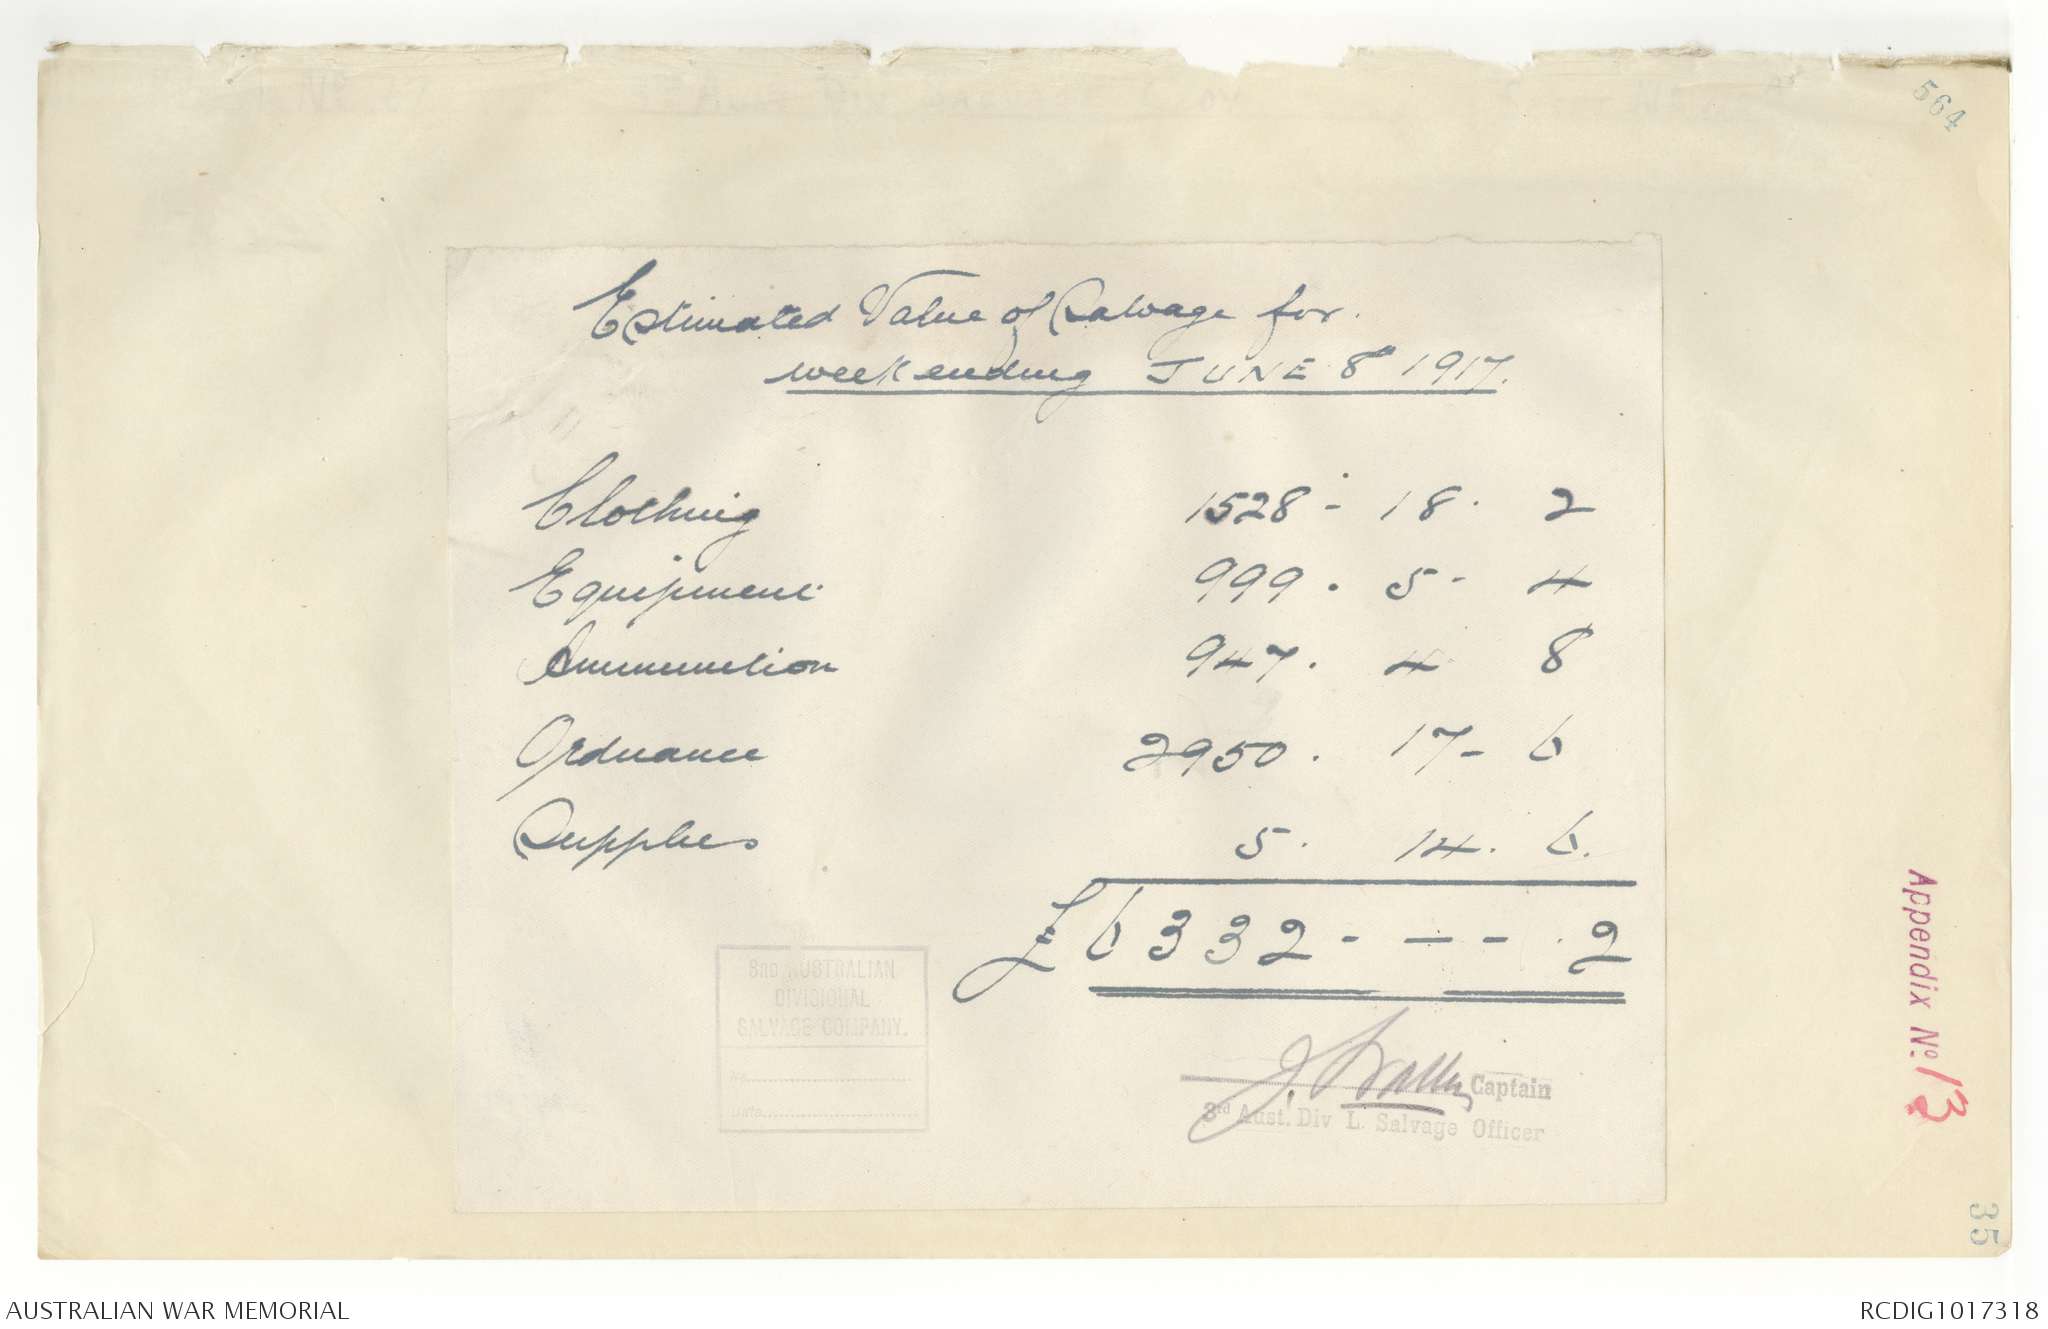 564
Estimated Value of Salvage for.
week ending JUNE 8th 1917.
Clothing 1528 - 18 . 2
Equipment 999 . 5 - 4
Ammunition 947 . 4 8
Ordnance 2950 . 17 - 6
Supplies 5 . 14 . 6.
£ 6332 - — - . 2
3RD AUSTRALIAN
DIVISIONAL
SALVAGE COMPANY.
No.
Date
Captain
3rd Aust. Div L. Salvage Officer
Appendix No. 13
35
AUSTRALIAN WAR MEMORIAL
RCDIG1017318